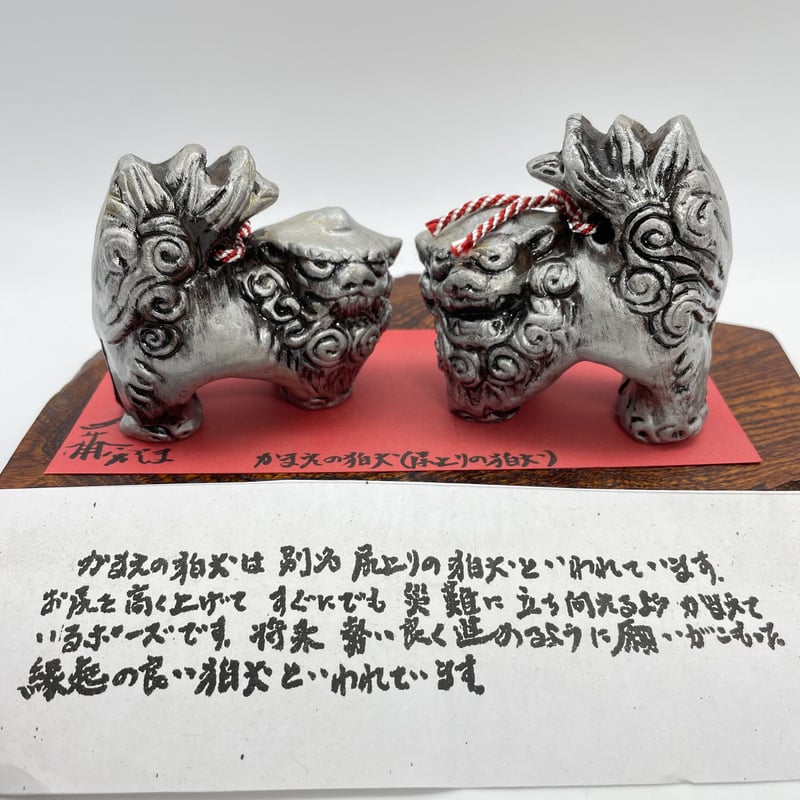 かまえの狛犬(尻上りの狛犬)
かまえの狛犬は 別名 尻上りの狛犬といわれています。
お尻を高く上げて すぐにでも 災難に立ち向えるよう かまえて
いるポーズです。将来 勢い良く進めるように願いがこもった
縁起の良い狛犬といわれています。